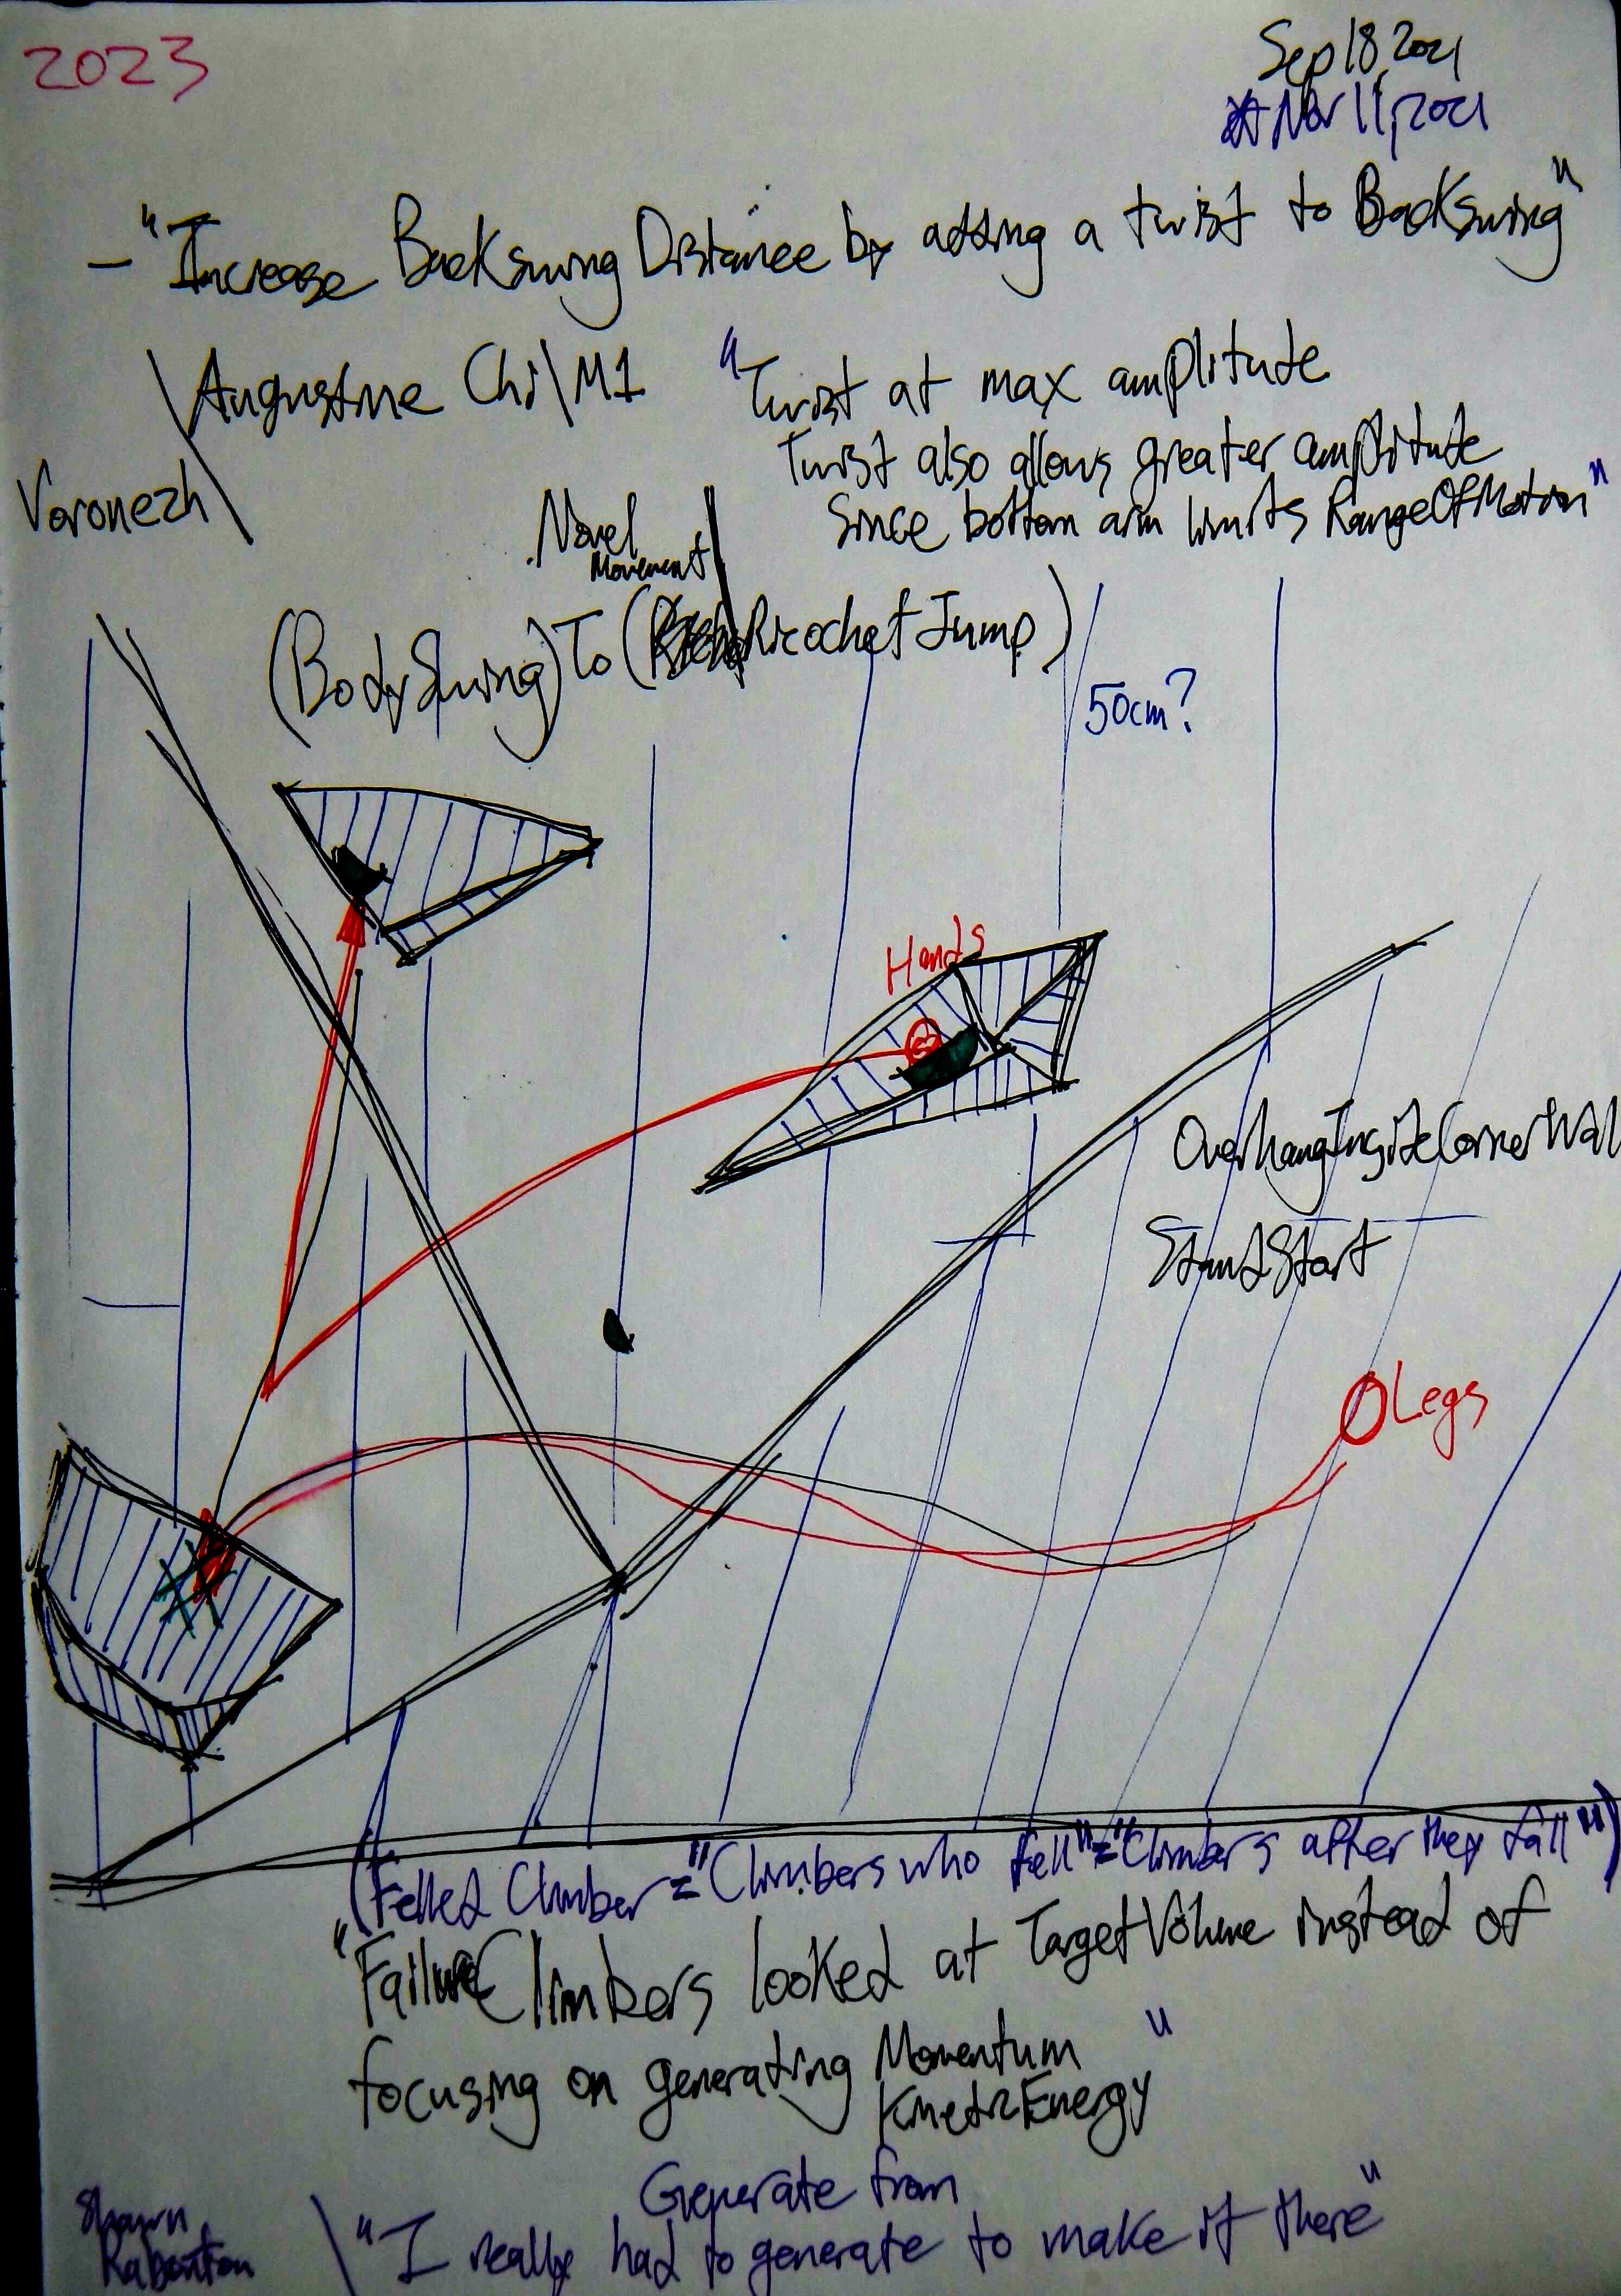 2023
Sep 18, 2021
Nov 11, 2021
— "Increase BackSwing Distance by adding a twist to BackSwing"
\Augustine Chi\M1
"Twist at max amplitude
Twist also allows greater amplitude
Since bottom arm limits RangeOfMotion"
Voronezh\
Novel
Movement
(BodySwing) To (RicochetJump)
50cm?
Hands
OverhangInsideCornerWall
StandStart
Legs
(Felled Climber = "Climbers who fell" = "Climbers after they fall")
"FailureClimbers looked at TargetVolume instead of
focusing on generating Momentum
KineticEnergy"
Generate from
Shawn
Raboutou \ "I really had to generate to make it there"